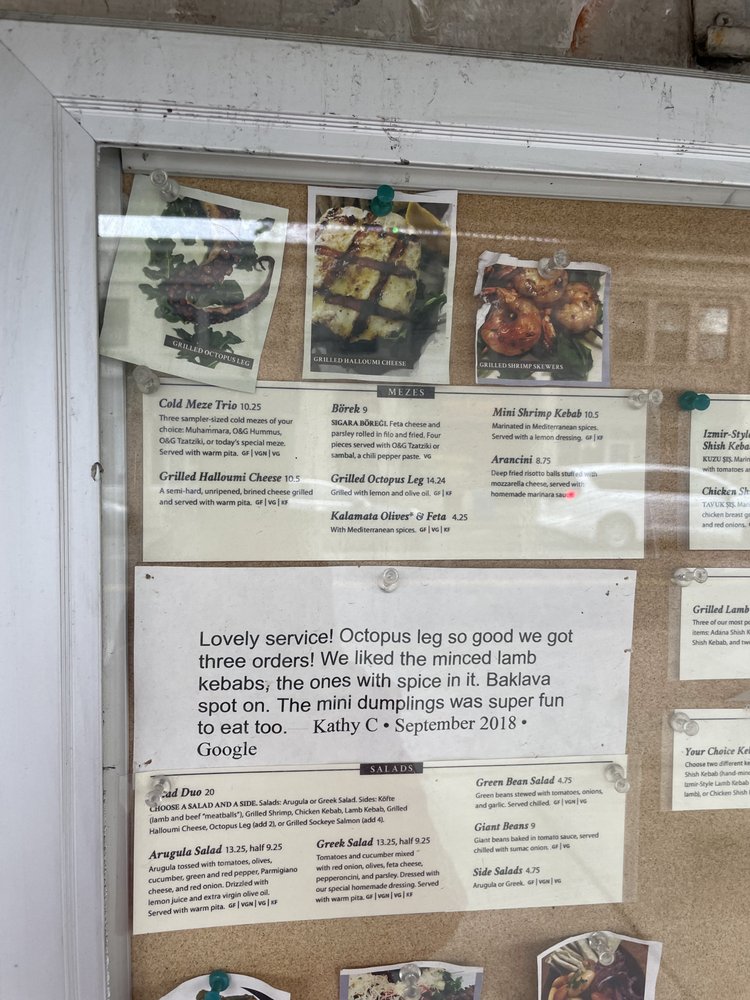 GRILLED OCTOPUS LEG
GRILLED HALLOUMI CHEESE
GRILLED SHRIMP SKEWERS
MEZES
Cold Meze Trio 10.25
Three sampler-sized cold mezes of your
choice: Muhammara, O&G Hummus,
O&G Tzatziki, or today's special meze.
Served with warm pita. GF | VGN | VG
Grilled Halloumi Cheese 10.5
A semi-hard, unripened, brined cheese grilled
and served with warm pita. GF | VG | KF
Börek 9
SIGARA BÖREĞİ. Feta cheese and
parsley rolled in filo and fried. Four
pieces served with O&G Tzatziki or
sambal, a chili pepper paste. VG
Grilled Octopus Leg 14.24
Grilled with lemon and olive oil. GF | KF
Kalamata Olives* & Feta 4.25
With Mediterranean spices. GF | VG | KF
Mini Shrimp Kebab 10.5
Marinated in Mediterranean spices.
Served with a lemon dressing. GF | KF
Arancini 8.75
Deep fried risotto balls stuffed with
mozzarella cheese, served with
homemade marinara
Izmir-Style
Shish Keba
KUZU ŞIŞ. Marin
with tomatoes a
Chicken Sh
TAVUK ŞIŞ. Mari
chicken breast g
and red onions.
Lovely service! Octopus leg so good we got
three orders! We liked the minced lamb
kebabs, the ones with spice in it. Baklava
spot on. The mini dumplings was super fun
to eat too. Kathy C • September 2018 •
Google
Grilled Lamb
Three of our most po
items: Adana Shish K
Shish Kebab, and tw
Your Choice Ke
Choose two different ke
Shish Kebab (hand-min
Izmir-Style Lamb Kebab
lamb), or Chicken Shish
SALADS
Duo 20
CHOOSE A SALAD AND A SIDE. Salads: Arugula or Greek Salad. Sides: Köfte
(lamb and beef "meatballs"), Grilled Shrimp, Chicken Kebab, Lamb Kebab, Grilled
Halloumi Cheese, Octopus Leg (add 2), or Grilled Sockeye Salmon (add 4).
Arugula Salad 13.25, half 9.25
Arugula tossed with tomatoes, olives,
cucumber, green and red pepper, Parmigiano
cheese, and red onion. Drizzled with
lemon juice and extra virgin olive oil.
Served with warm pita. GF | VGN | VG | KF
Greek Salad 13.25, half 9.25
Tomatoes and cucumber mixed
with red onion, olives, feta cheese,
pepperoncini, and parsley. Dressed with
our special homemade dressing. Served
with warm pita. GF | VGN | VG | KF
Green Bean Salad 4.75
Green beans stewed with tomatoes, onions,
and garlic. Served chilled. GF | VGN | VG
Giant Beans 9
Giant beans baked in tomato sauce, served
chilled with sumac onion. GF | VG
Side Salads 4.75
Arugula or Greek. GF | VGN | VG | KF